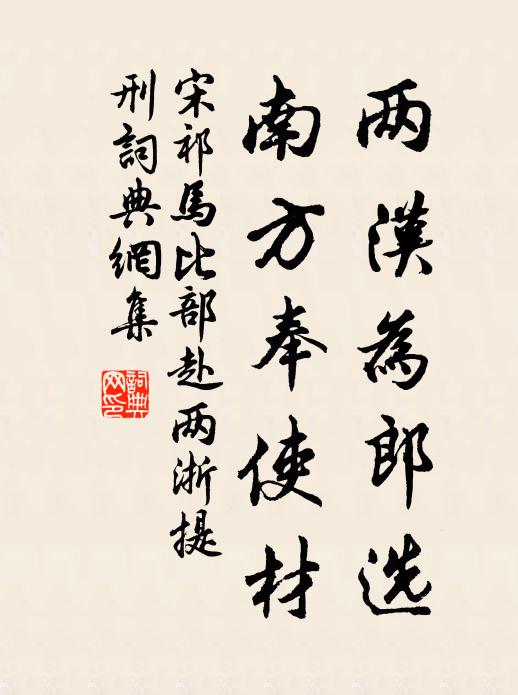 两漢為郎选
南方奉使材
宋祁馬比部赴两浙提
刑詞典網集
詞典
网印